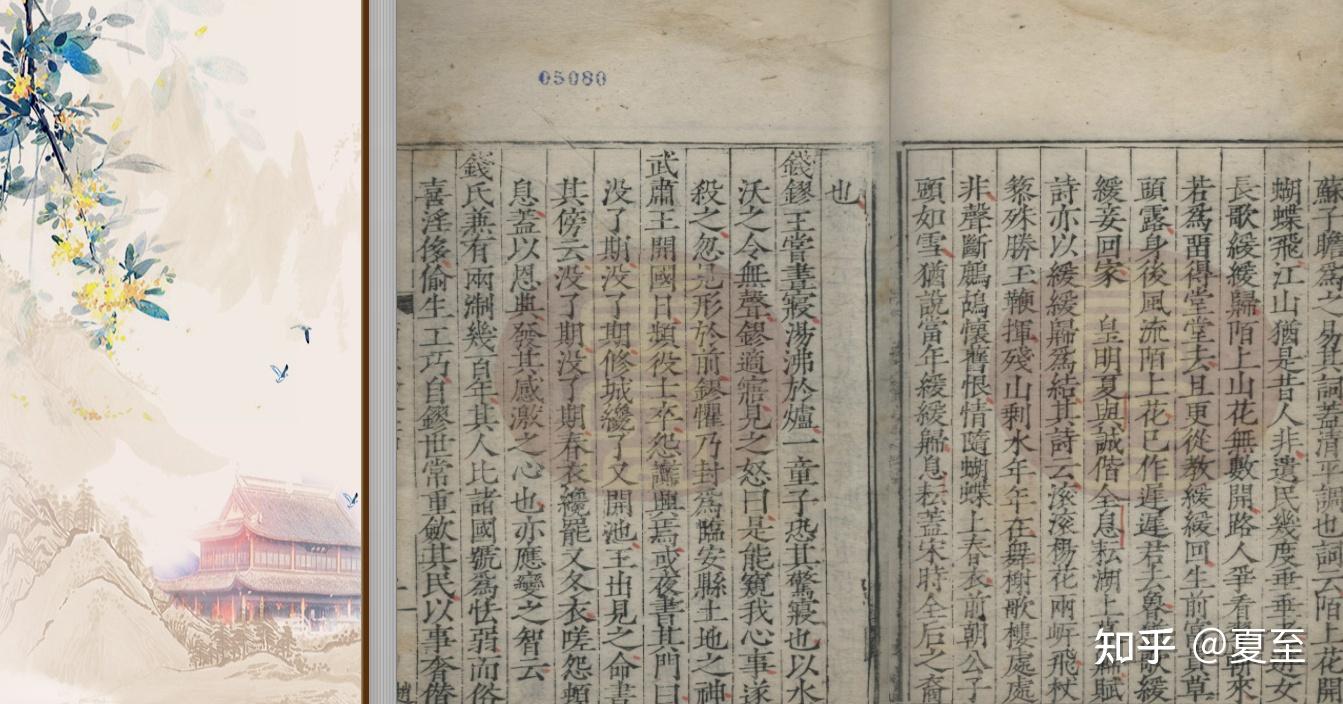 05080
蘇子瞻為之易其詞蓋清平調也詞云陌上花開
蝴蝶飛江山猶是昔人非遺民幾度垂垂女
長歌緩緩歸陌上山花無數開路人爭看來
若為畱得堂堂去且更從教緩緩回生前草
頭露身後風流陌上花已作遲遲君去魯緩
緩妾回家 皇明夏與誠偕全息耘湖上賦
詩亦以緩緩歸為結其詩云滾滾楊花兩岍飛杖
藜殊勝玉鞭揮殘山剩水年年在舞榭歌樓處處
非聲斷鷓鴣懷舊恨情隨蝴蝶上春衣前朝公子
頭如雪猶說當年緩緩歸息耘蓋宋時全后之裔
也
錢鏐王嘗晝寢湯沸於爐一童子恐其驚寢也以水
沃之令無聲鏐適寤見之怒曰是能窺我心事遂
殺之忽見形於前鏐懼乃封為臨安縣土地之神
武肅王開國日頻役士卒怨讟興焉或夜書其門曰
没了期没了期修城纔了又開池王出見之命書
其傍云没了期没了期春衣纔罷又冬衣嗟怨頓
息蓋以恩典發其感激之心也亦應變之智云
錢氏兼有兩淛幾百年其人比諸國號為怯弱而俗
喜淫侈偷生工巧自鏐世常重斂其民以事奢僭
知乎 @夏至